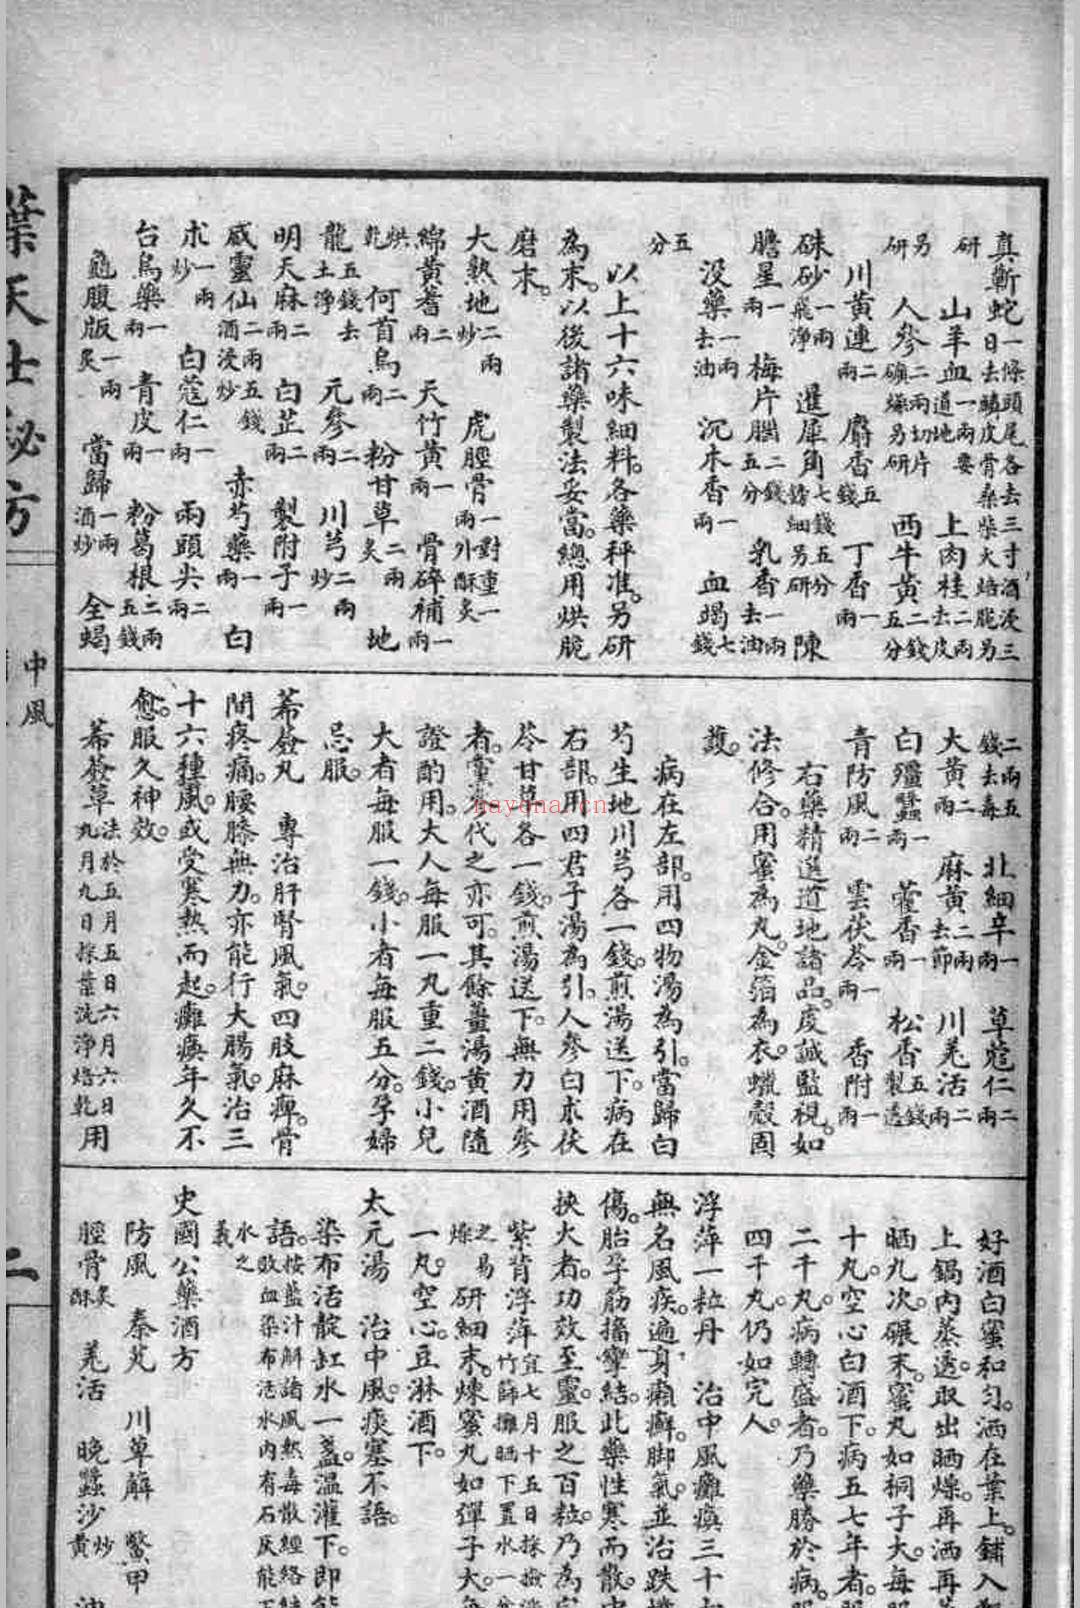 真蘄蛇一條頭尾各去三寸酒浸三日去皮骨桑柴火焙脆另
研　山羊血一兩要道地　上肉桂二兩去皮
另研　人參二兩切片礦燥另研　西牛黃二錢五分
川黃連二兩　麝香五錢　丁香一兩
硃砂一兩飛淨　暹犀角七錢五分銼細另研　陳
膽星一兩　梅片腦二錢五分　乳香一兩去油
沒藥一兩去油　沉木香一兩　血竭七錢
五分
以上十六味細料。各藥秤准。另研
為末。以後諸藥製法妥當。總用烘脆
磨末。
大熟地二兩炒　虎脛骨一對重一兩外酥炙
綿黃耆二兩　天竹黃一兩　骨碎補一兩
烘乾　何首烏二兩　粉甘草二兩炙　地
龍五錢去土淨　元參二兩　川芎二兩炒
明天麻二兩　白芷二兩　製附子一兩
威靈仙二兩五錢酒浸炒　赤芍藥一兩　白
朮一兩炒　白蔻仁一兩　兩頭尖二兩
台烏藥一兩　青皮一兩　粉葛根二兩五錢
龜腹版一兩炙　當歸一兩酒炒　全蝎
二兩五錢去毒　北細辛一兩　草蔻仁二兩
大黃二兩　麻黃二兩去節　川羌活二兩
白殭蠶一兩　藿香一兩　松香五錢製透
青防風二兩　雲茯苓一兩　香附一兩
右藥精選道地諸品。虔誠監視。如
法修合。用蜜為丸。金箔為衣。蠟殼固
護。
病在左部。用四物湯為引。當歸白
芍生地川芎各一錢。煎湯送下。病在
右部。用四君子湯為引。人參白朮茯
苓甘草各一錢。煎湯送下。無力用參
者。黨參代之亦可。其餘薑湯黃酒隨
證酌用。大人每服一丸重二錢。小兒
大者每服一錢。小者每服五分。孕婦
忌服。
豨薟丸　專治肝腎風氣。四肢麻痺。骨
間疼痛。腰膝無力。亦能行大腸氣。治三
十六種風。或受寒熱而起。癱瘓年久不
愈。服久神效。
豨薟草法於五月五日六月六日九月九日採葉洗淨焙乾用
好酒白蜜和勻。洒在葉上。鋪入
上鍋內蒸透。取出晒燥。再洒再
晒九次。碾末。蜜丸如桐子大。每
十丸。空心白酒下。病五七年者。
二千丸。病轉盛者。乃藥勝於病。
四千丸。仍如完人。
浮萍一粒丹　治中風癱瘓三十
無名風疾。遍身癩癬。腳氣。並治跌
傷。胎孕筋搐攣結。此藥性寒而散。
挾大者。功效至靈。服之百粒。乃為
紫背浮萍宜七月十五日採竹篩攤晒下置水一
之易燥　研細末。煉蜜丸如彈子大。
一丸。空心。豆淋酒下。
太元湯　治中風痰塞不語。
染布活靛缸水一盞。溫灌下。即能
語。按藍汁解諸風熱毒散經絡敗血染布活水內有石灰能
水之義
史國公藥酒方
防風　秦艽　川萆薢　鱉甲
脛骨炙酥　羌活　晚蠶沙炒黃
葉天士秘方
中風
二
nayona.cn